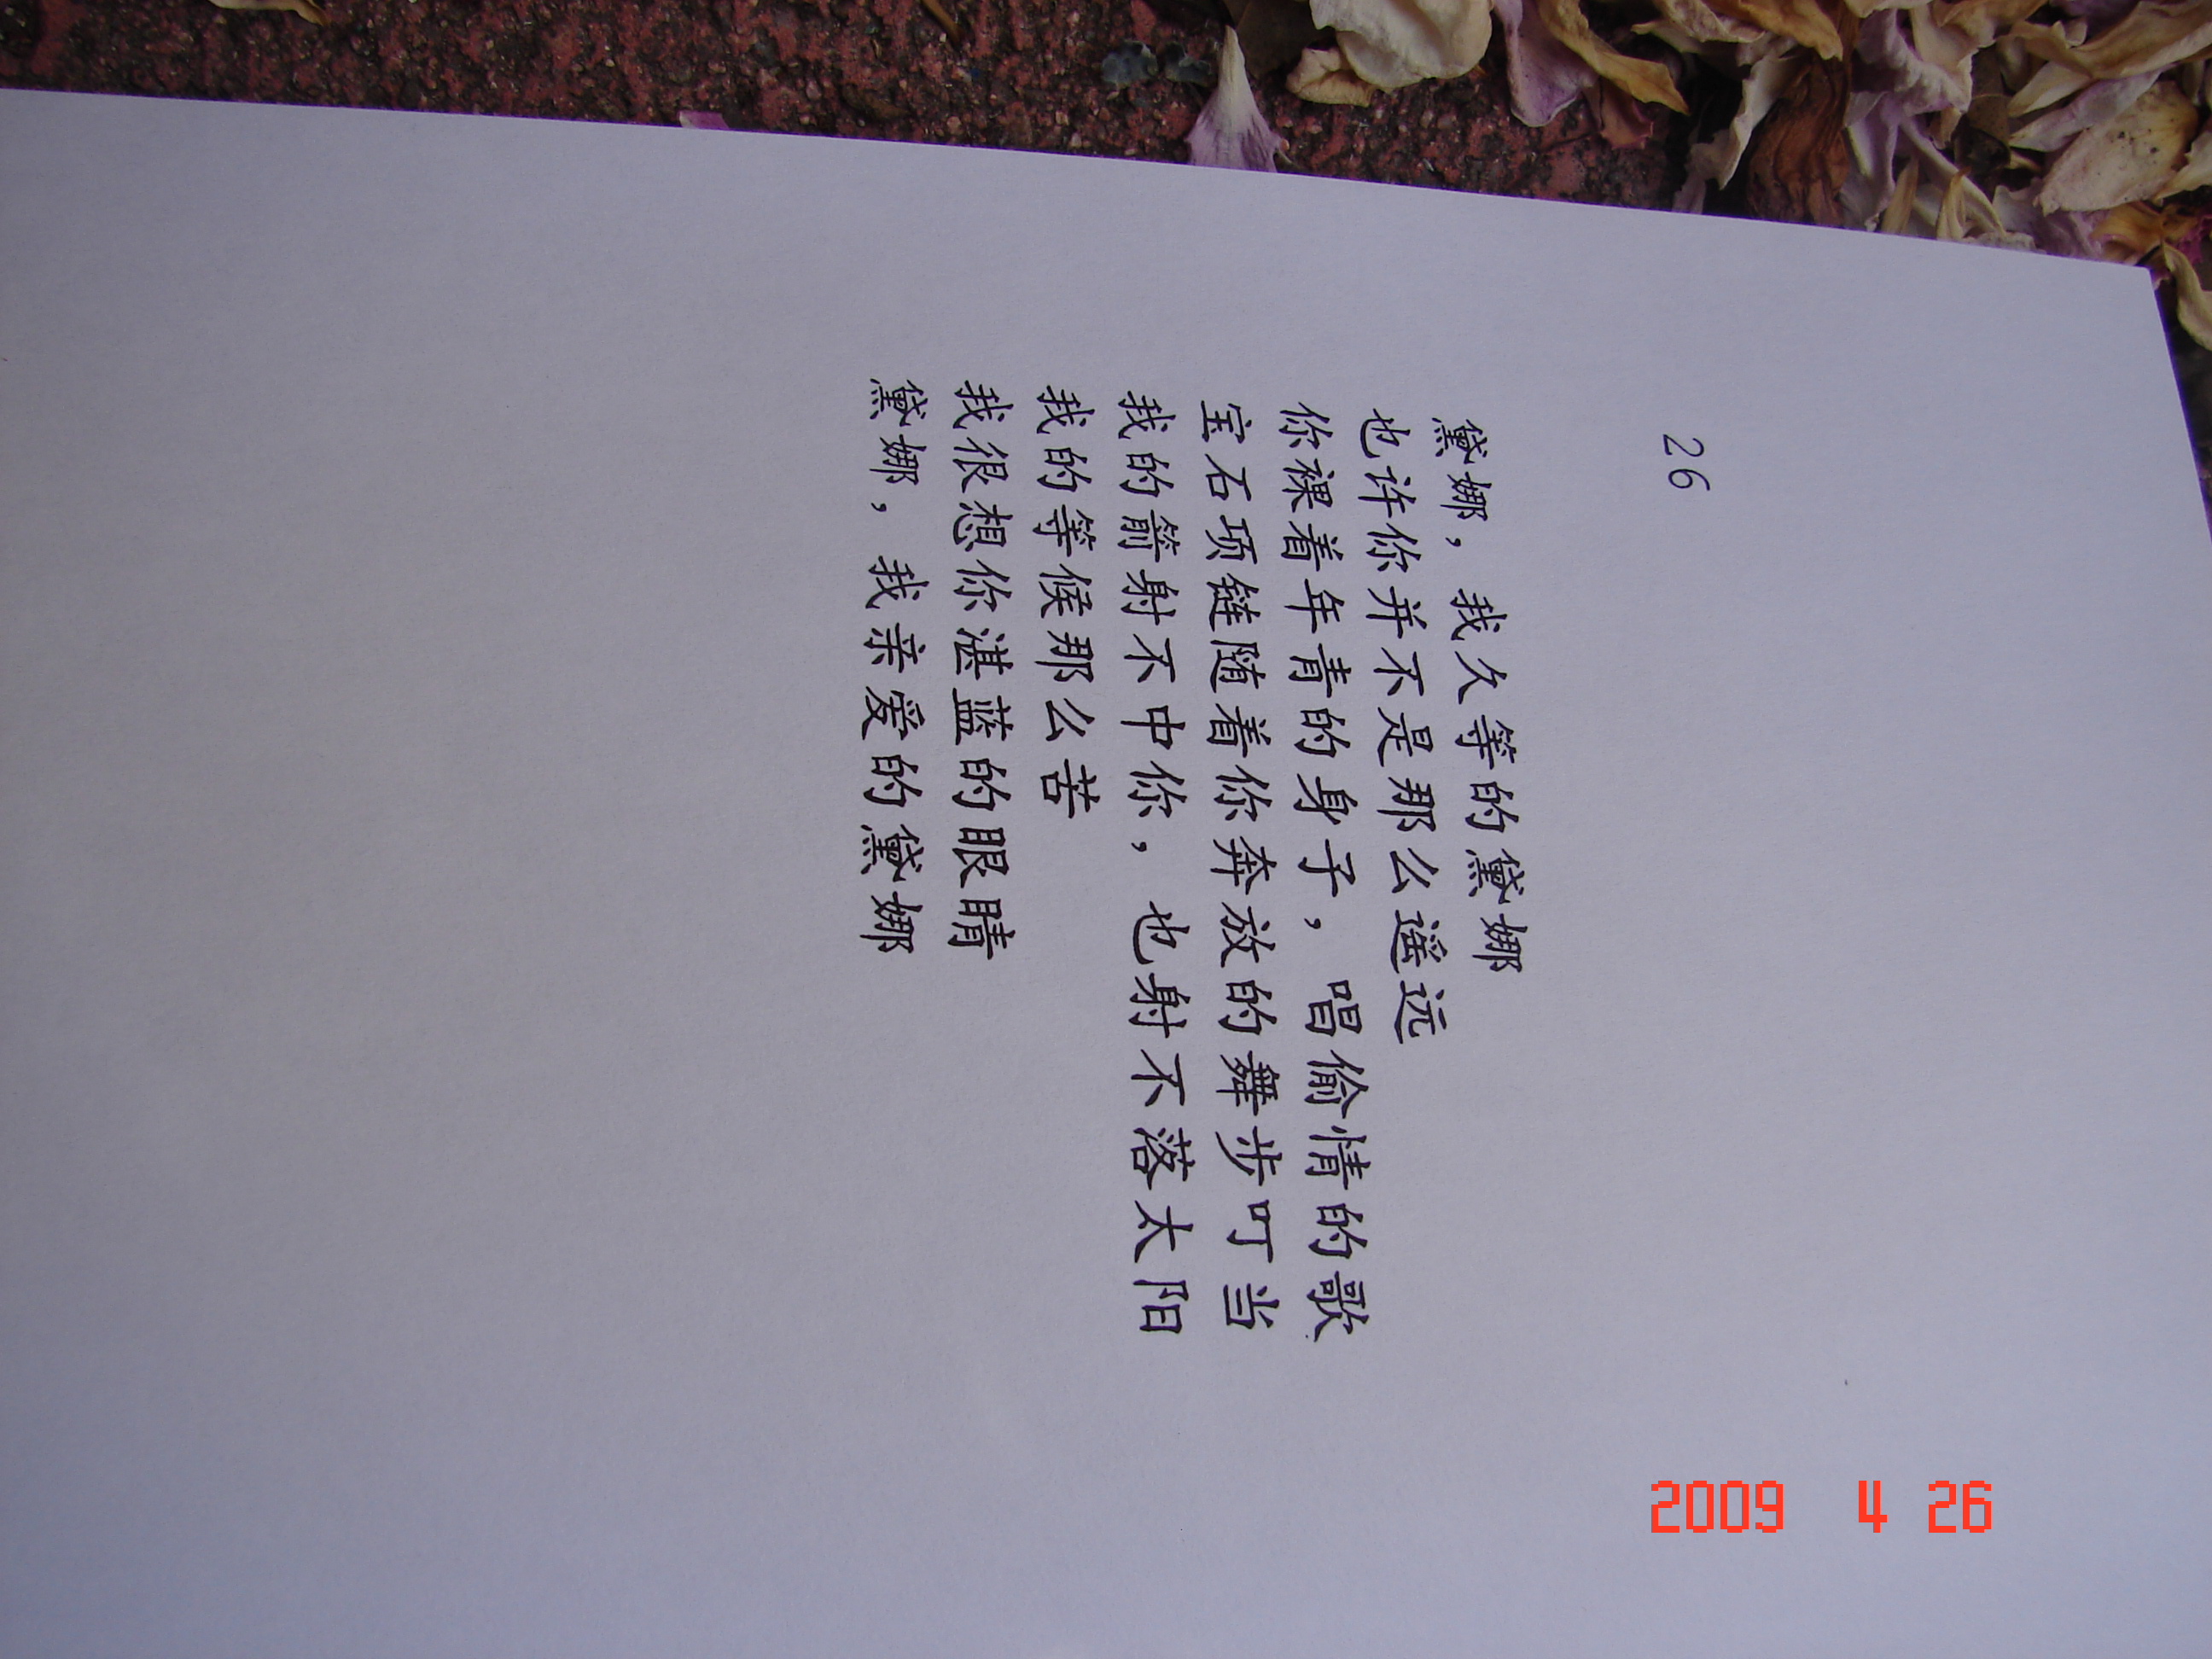 26
黛娜，我久等的黛娜
也许你并不是那么遥远
你裸着年青的身子，唱偷情的歌
宝石项链随着你奔放的舞步叮当
我的箭射不中你，也射不落太阳
我的等候那么苦
我很想你湛蓝的眼睛
黛娜，我亲爱的黛娜
2009 4 26